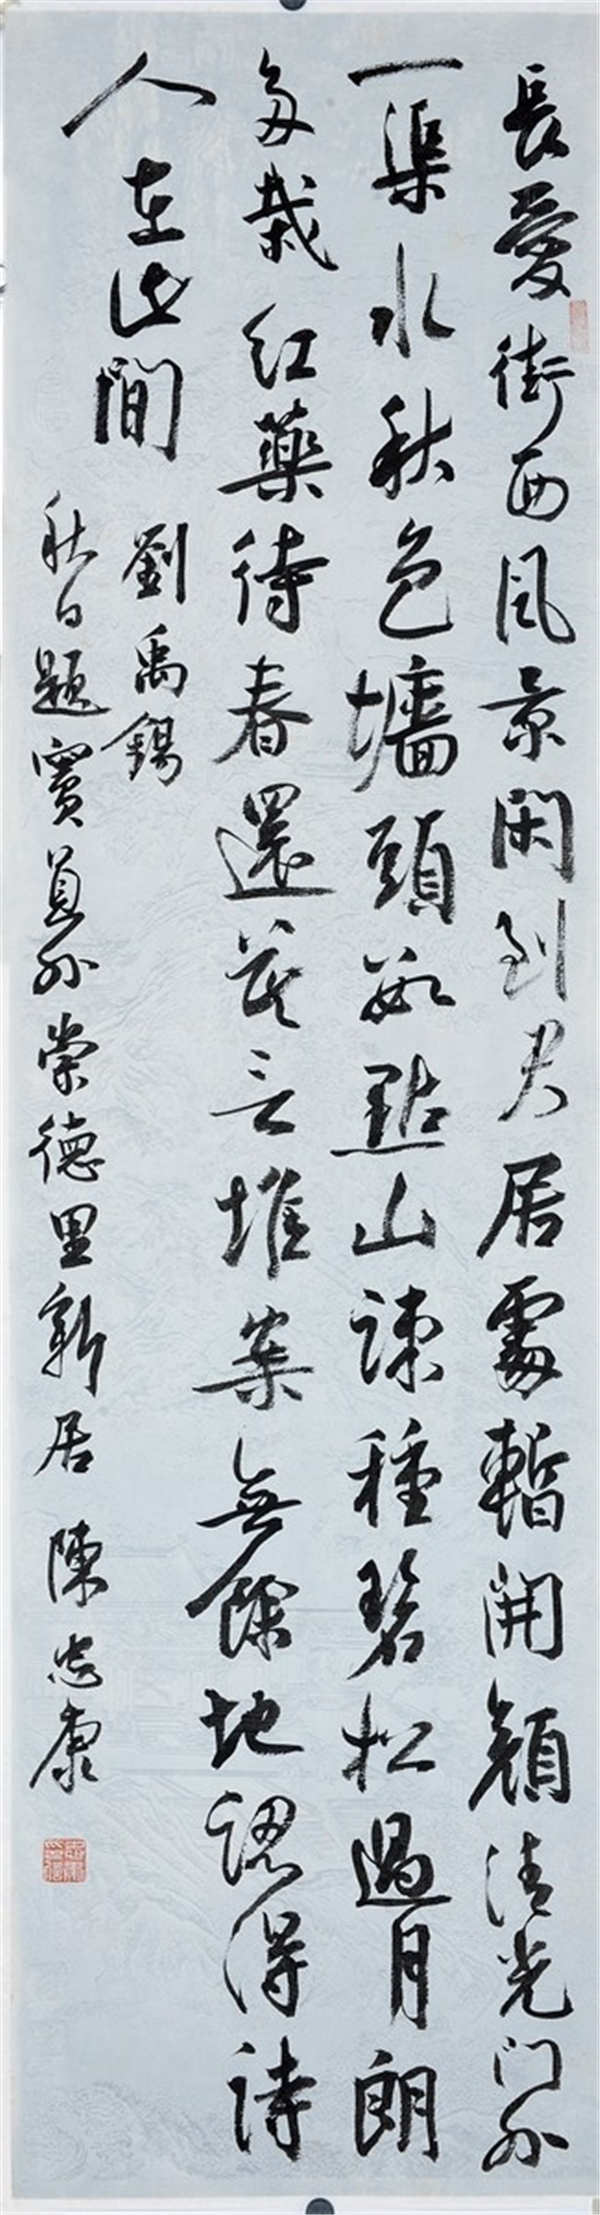 長愛街西風景閑到君居處暫開顔清光門外
一渠水秋色墻頭數點山疎種碧松過月朗
多栽紅藥待春還莫言堆案無餘地認得詩
人在此間
劉禹錫
秋日題竇員外崇德里新居 陳忠康